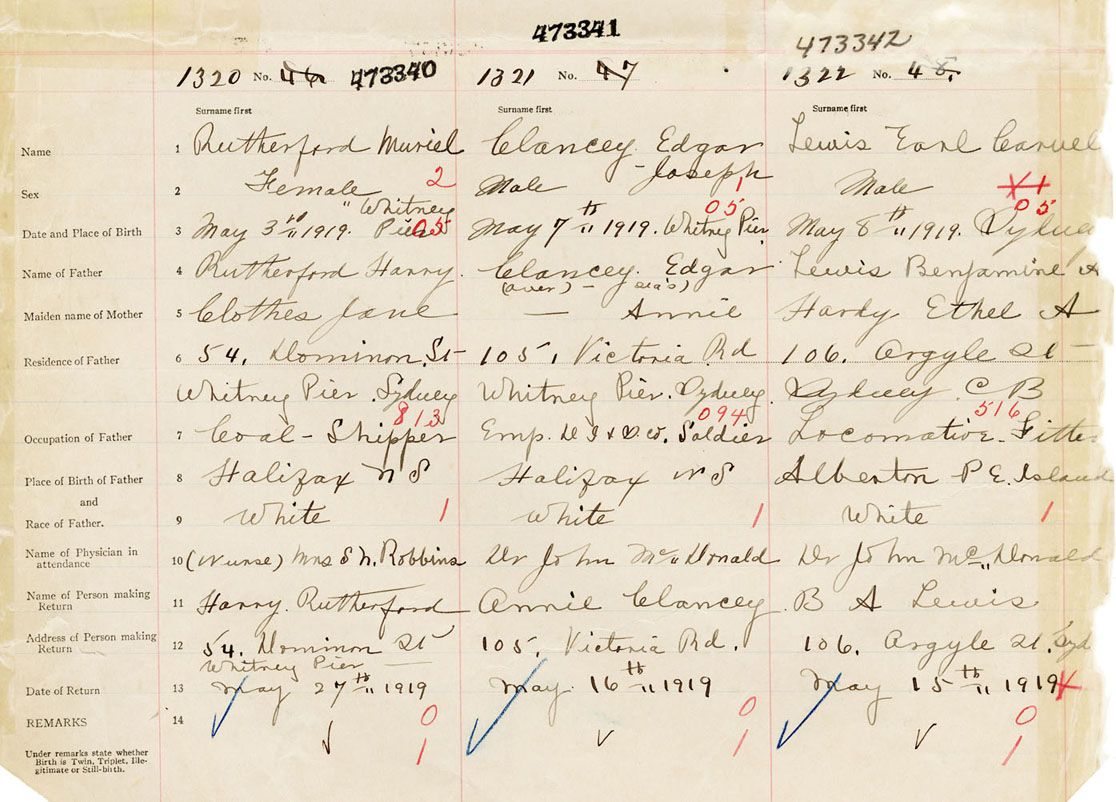 473341
473342
1320 No. 46 473340 1321 No. 47 1322 No. 48.
Surname first Surname first Surname first
Name 1 Rutherford Muriel Clancey. Edgar Lewis Earl
Joseph
Sex 2 Female 2 Male 1 Male 1
" Whitney 05 05
Date and Place of Birth 3 May 3th " 1919. Pier 05 May 7th " 1919. Whitney Pier May 8th " 1919. Sydney
Name of Father 4 Rutherford Harry. Clancey. Edgar Lewis Benjamine A
(over) - seas)
Maiden name of Mother 5 Clothes Jane — Annie Hardy Ethel A
Residence of Father 6 54, Dominon. St 105, Victoria Rd 106. Argyle St
Whitney Pier. Sydney Whitney Pier. Sydney. Sydney C B
813 094 516
Occupation of Father 7 Coal-Shipper Emp. D I & S. Co. Soldier Locomative. Fitter
Place of Birth of Father 8 Halifax N S Halifax N S Alberton P E. Island
and
Race of Father. 9 White 1 White 1 White 1
Name of Physician in attendance 10 (Nurse) Mrs S N. Robbins Dr John Mc"Donald Dr John Mc"Donald
Name of Person making Return 11 Harry. Rutherford Annie Clancey. B A Lewis
Address of Person making Return 12 54. Dominon St 105, Victoria Rd. 106. Argyle St. Syd
Whitney Pier —
Date of Return 13 May 27th " 1919 May. 16th " 1919 May 15th " 1919
REMARKS 14 0 0 0
Under remarks state whether
Birth is Twin, Triplet, Ille-
gitimate or Still-birth.
1 1 1